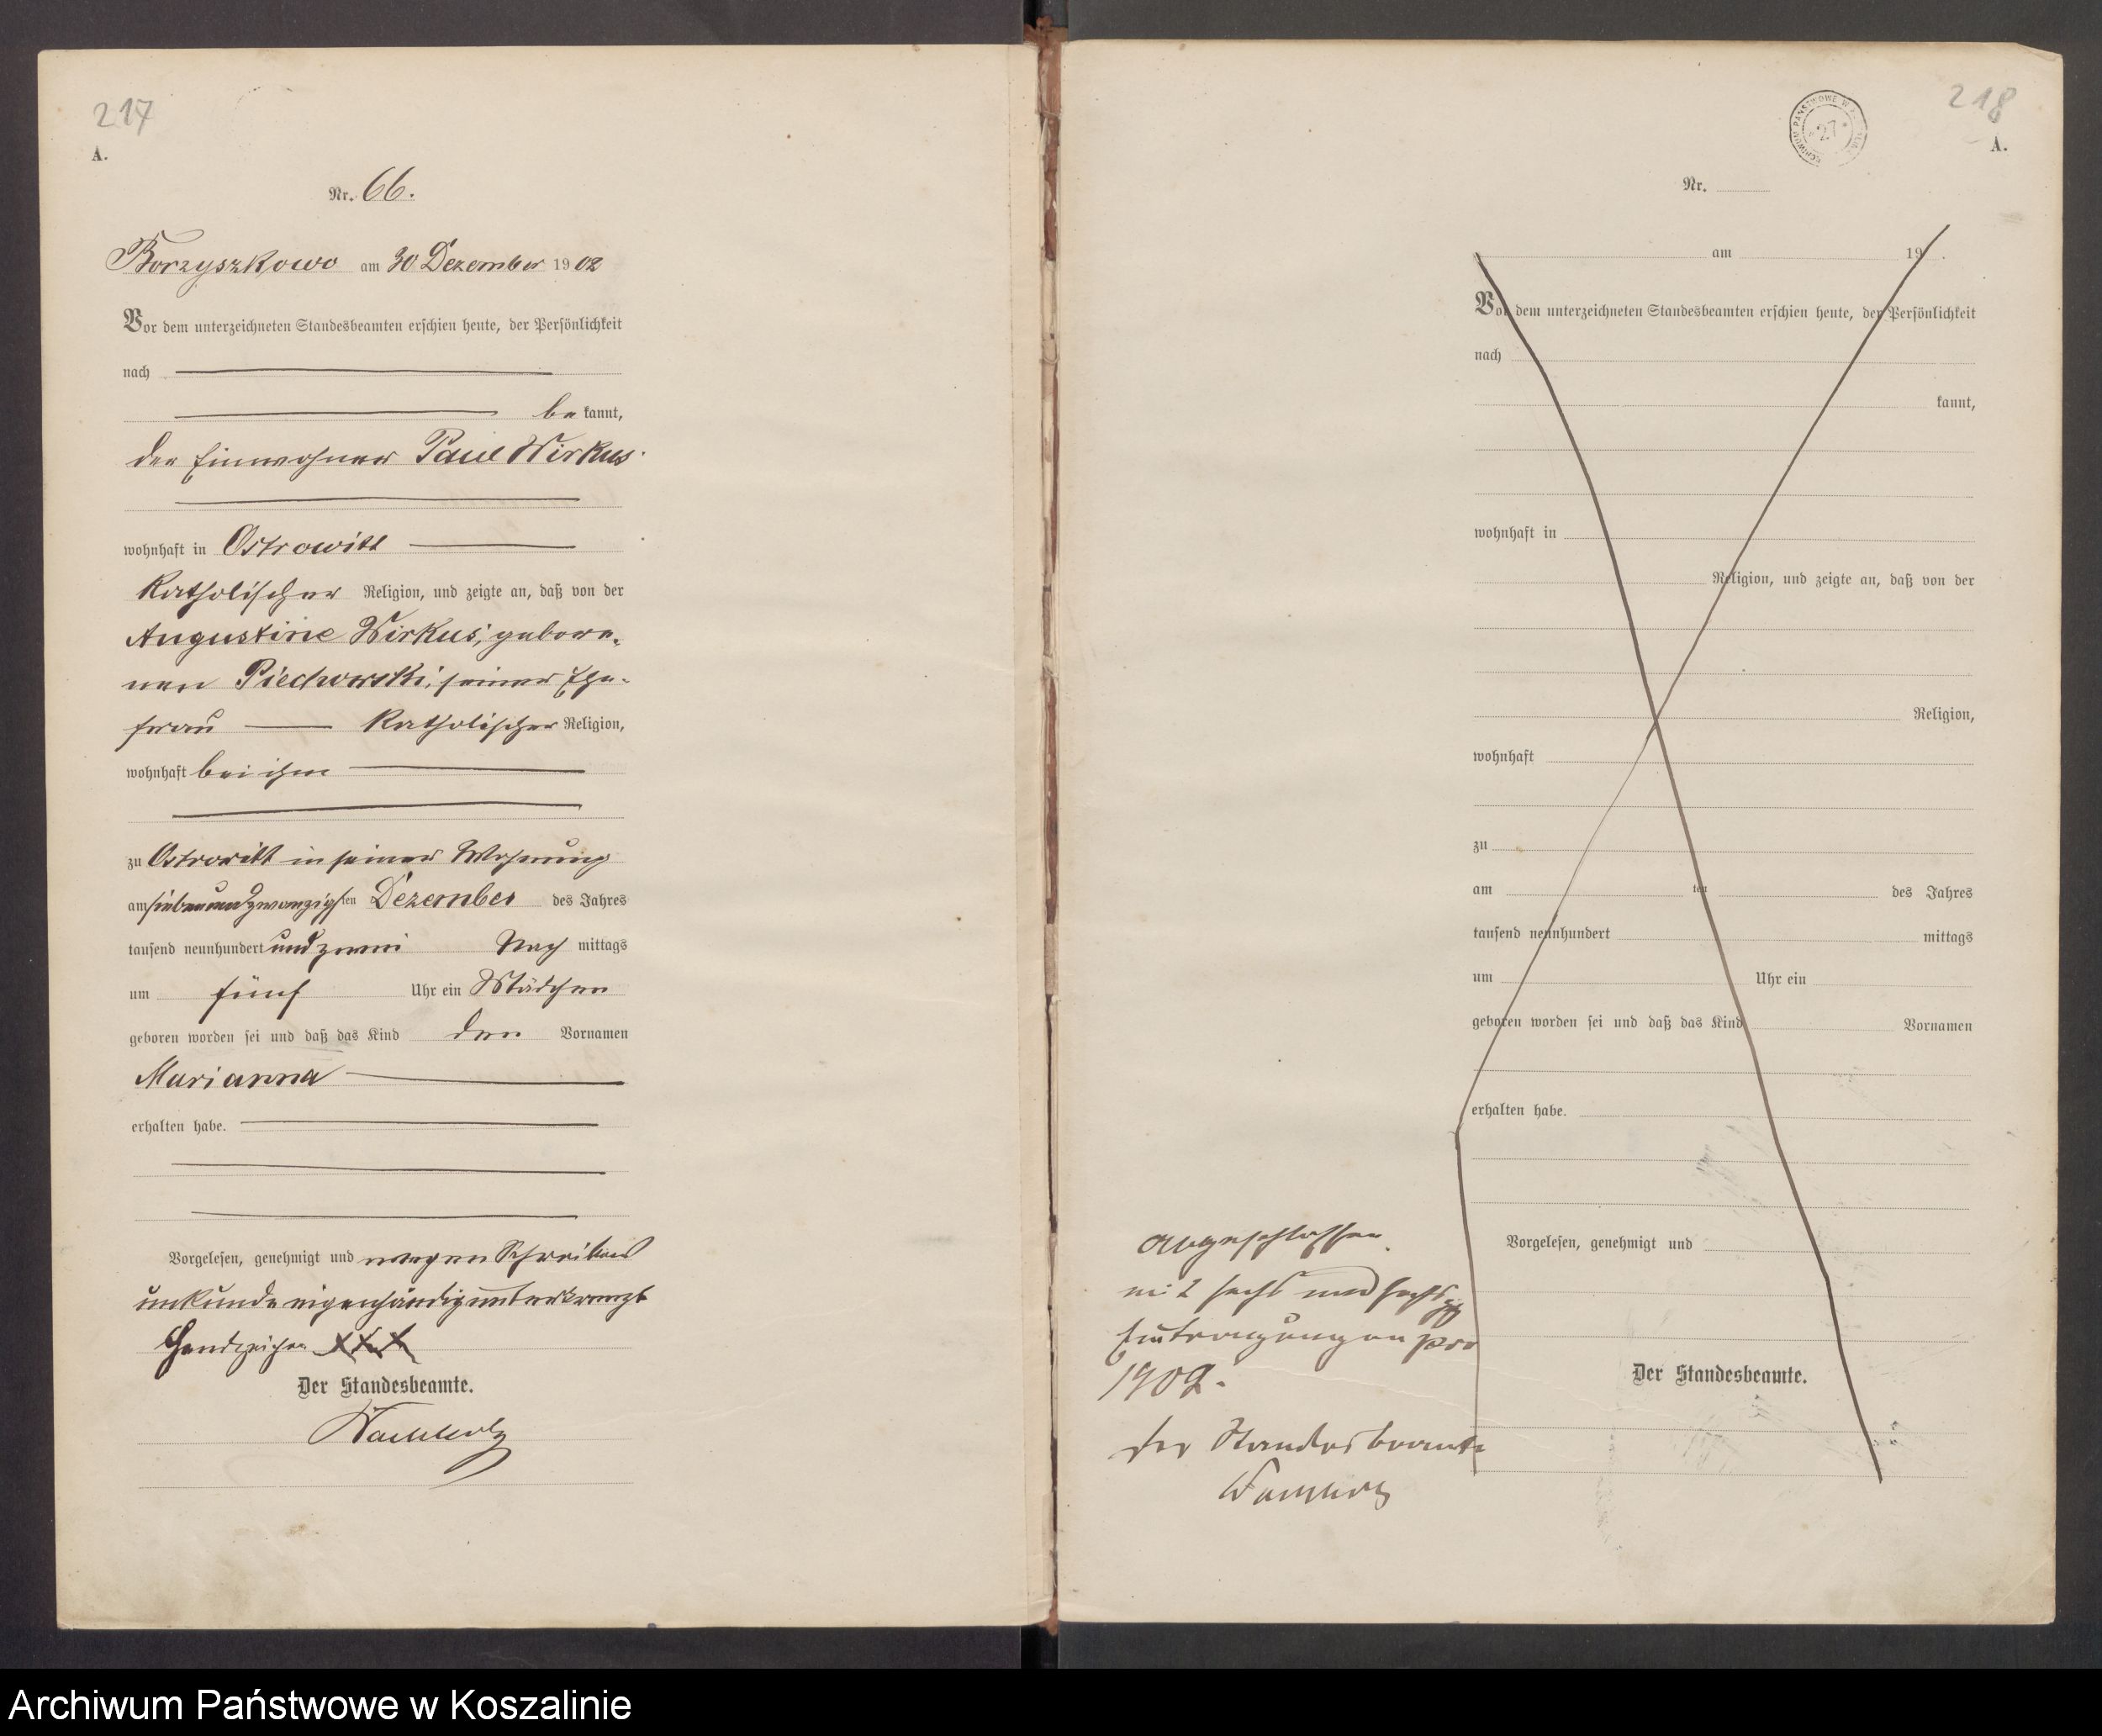 217
A.
Nr. 66.
Borzyszkowo am 30 Dezember 1902
Vor dem unterzeichneten Standesbeamten erschien heute, der Persönlichkeit
nach
be kannt,
der Einwohner Paul Wirkus
wohnhaft in Ostrowitt
katholischer Religion, und zeigte an, daß von der
Augustine Wirkus, gebore-
nen Piechowski, seiner Ehe-
frau katholischer Religion,
wohnhaft bei ihm
zu Ostrowitt in seiner Wohnung
am siebenundzwanzigsten Dezember des Jahres
tausend neunhundert und zwei Nach mittags
um fünf Uhr ein Mädchen
geboren worden sei und daß das Kind den Vornamen
Marianna
erhalten habe.
Vorgelesen, genehmigt und wegen Schreibens
unkunde eigenhändig unterkreuzt
Handzeichen XXX
Der Standesbeamte.
218
A.
27
Nr.
am 19 .
Vor dem unterzeichneten Standesbeamten erschien heute, der Persönlichkeit
nach
kannt,
wohnhaft in
Religion, und zeigte an, daß von der
Religion,
wohnhaft
zu
am ten des Jahres
tausend neunhundert mittags
um Uhr ein
geboren worden sei und daß das Kind Vornamen
erhalten habe.
Vorgelesen, genehmigt und
Der Standesbeamte.
Abgeschlossen
mit sechs und sechszig
Eintragungen pro
1902.
Der Standesbeamte
Archiwum Państwowe w Koszalinie